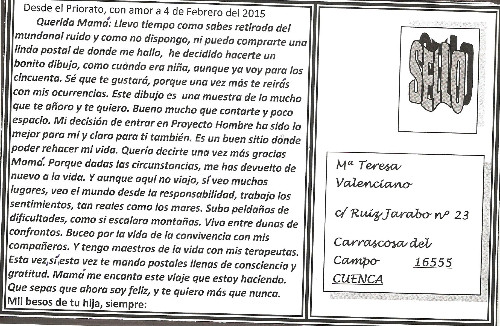 Desde el Priorato, con amor a 4 de Febrero del 2015
Querida Mamá: Llevo tiempo como sabes retirada del
mundanal ruido y como no dispongo, ni puedo comprarte una
linda postal de donde me hallo, he decidido hacerte un
bonito dibujo, como cuándo era niña, aunque ya voy para los
cincuenta. Sé que te gustará, porque una vez más te reirás
con mis ocurrencias. Este dibujo es una muestra de lo mucho
que te añoro y te quiero. Bueno mucho que contarte y poco
espacio. Mi decisión de entrar en Proyecto Hombre ha sido lo
mejor para mi y claro para ti también. Es un buen sitio dónde
poder rehacer mi vida. Quería decirte una vez más gracias
Mamá. Porque dadas las circunstancias, me has devuelto de
nuevo a la vida. Y aunque aquí no viajo, sí veo muchos
lugares, veo el mundo desde la responsabilidad, trabajo los
sentimientos, tan reales como los mares. Subo peldaños de
dificultades, como si escalara montañas. Vivo entre dunas de
confrontos. Buceo por la vida de la convivencia con mis
compañeros. Y tengo maestros de la vida con mis terapeutas.
Esta vez,sí esta vez te mando postales llenas de consciencia y
gratitud. Mamá me encanta este viaje que estoy haciendo.
Que sepas que ahora soy feliz, y te quiero más que nunca.
Mil besos de tu hija, siempre:
SELLO
Mª Teresa
Valenciano
c/ Ruiz Jarabo nº 23
Carrascosa del
Campo 16555
CUENCA